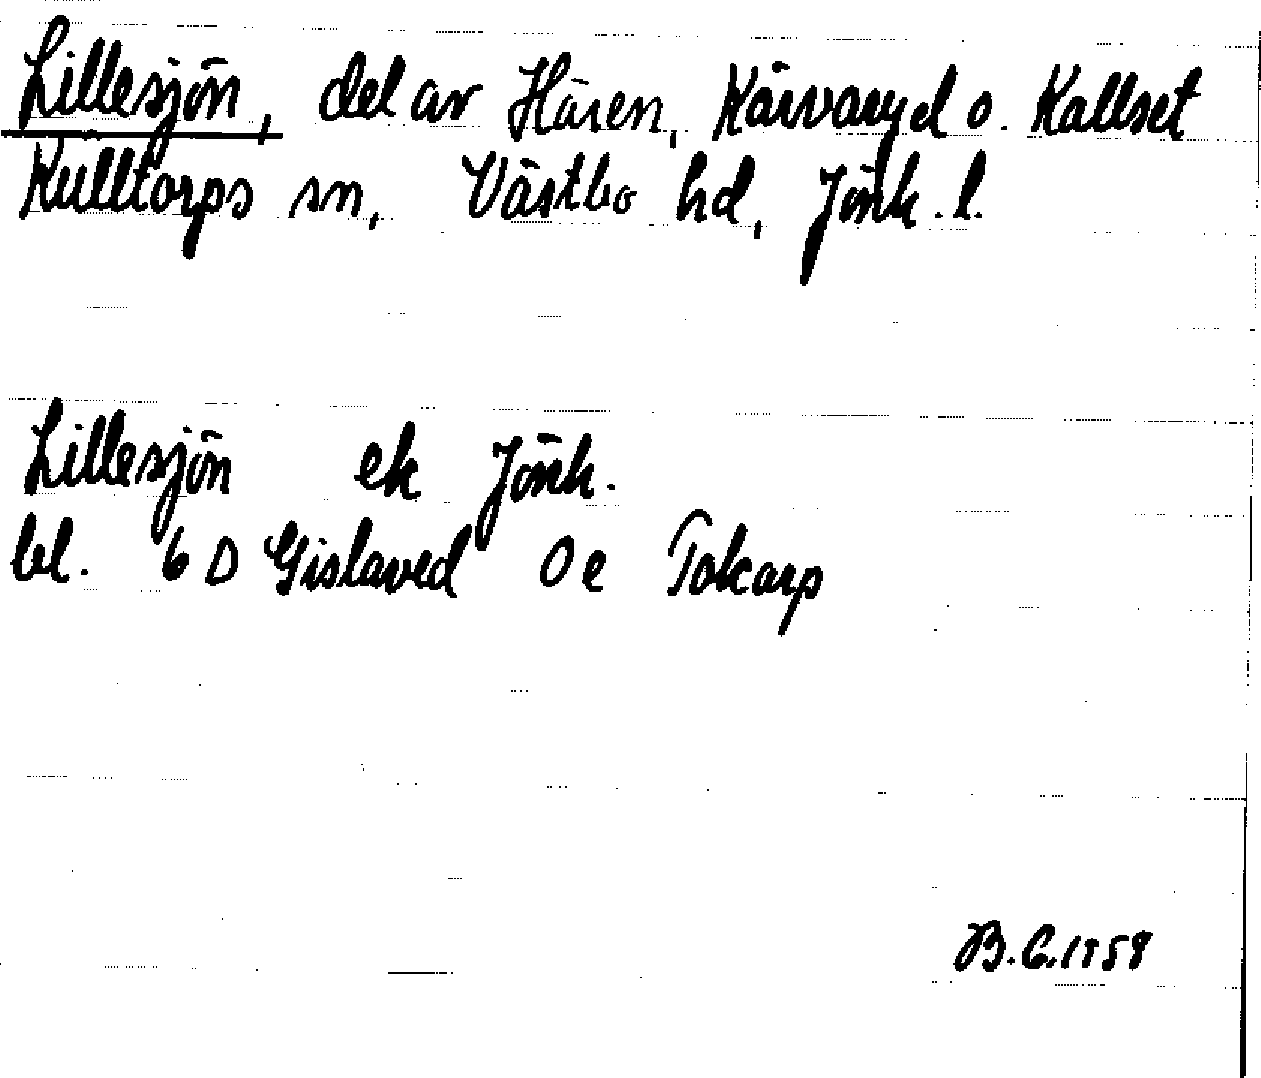 Lillesjön, del av Hären, Kärvaryd o. Kallset
Kulltorps sn, Västbo hd, Jönk. l.
Lillesjön ek Jönk.
bl. 6 D Gislaved 0 e Tokarp
B. G. 1958